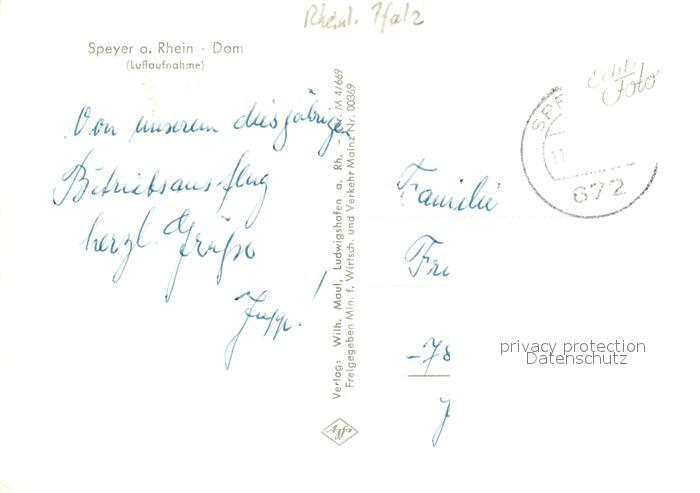 Rheinl. Pfalz
Speyer a. Rhein · Dom
(Luftaufnahme)
Von unserem diesjährigen
Betriebsausflug
herzl. Grüße
Jupp!
Verlag: Wilh. Maul, Ludwigshafen a. Rh. - Nr. M 4/669
Freigegeben Min. f. Wirtsch. und Verkehr Mainz Nr. 00369
Agfa
Echte
Foto
SPE
11
672
Familie
Fre
-78
privacy protection
Datenschutz